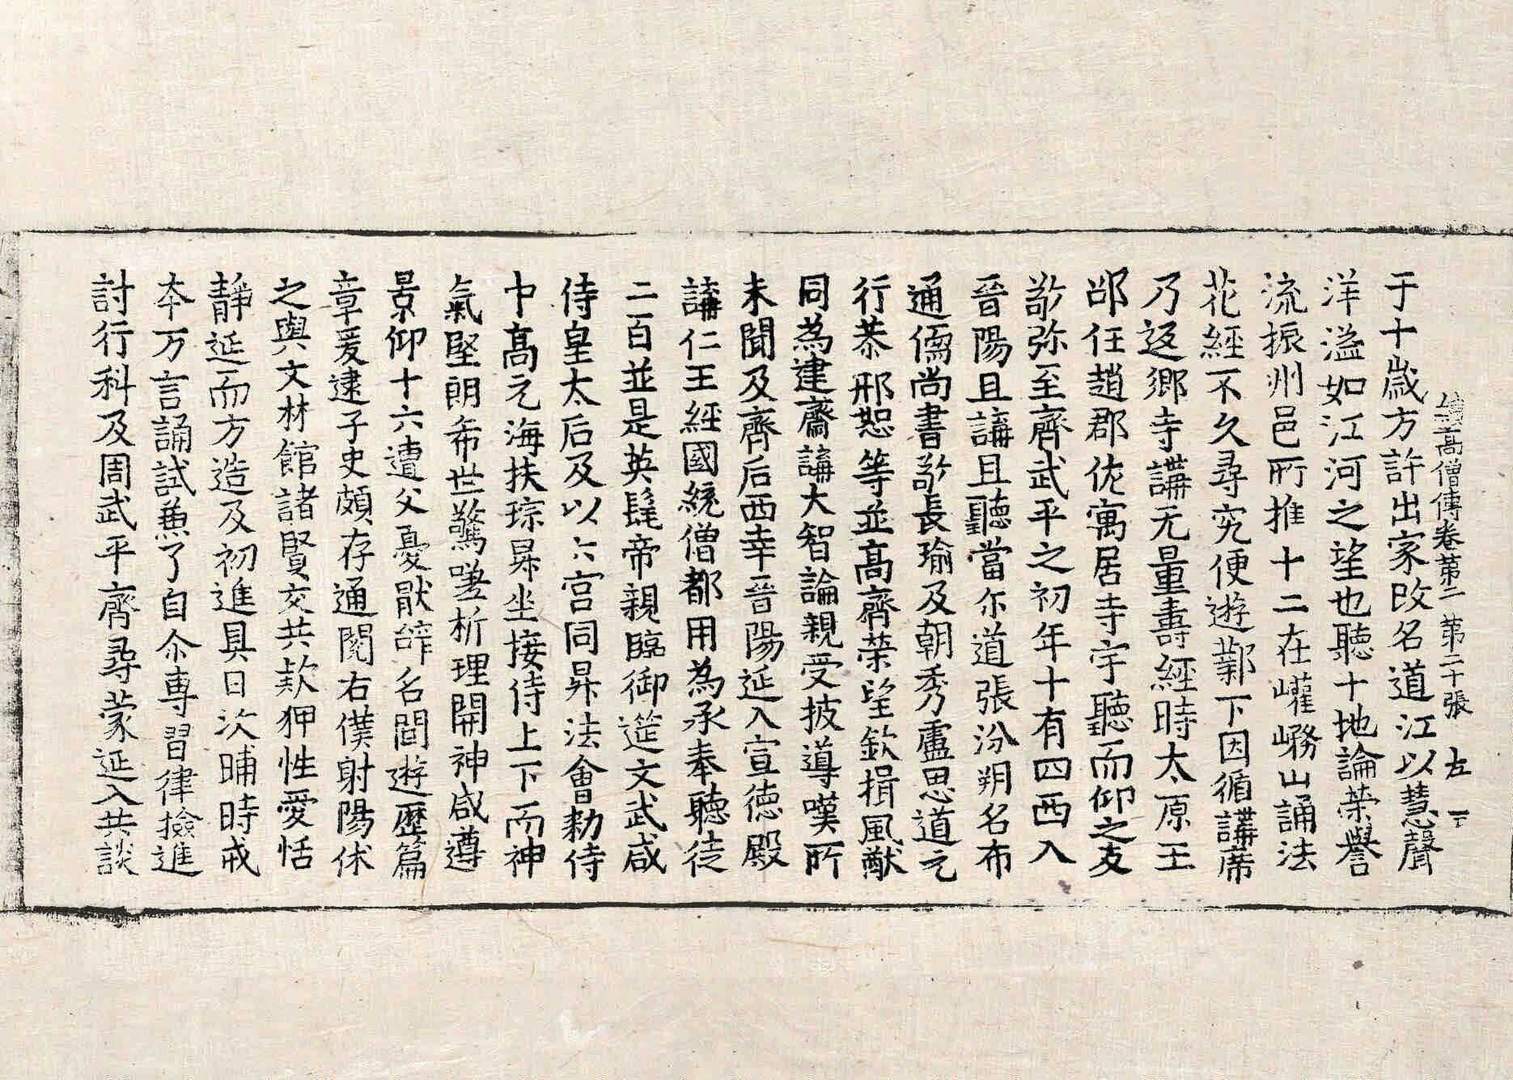 續高僧傳卷第二 第二十張 左
于十歲方許出家改名道江以慧聲
洋溢如江河之望也聽十地論榮譽
流振州邑所推十二在巏嵍山誦法
花經不久尋究便遊鄴下因循講席
乃返鄉寺講无量壽經時太原王
邵任趙郡佐寓居寺宇聽而仰之友
敬弥至齊武平之初年十有四西入
晉陽且講且聽當尒道張汾朔名布
通儒尚書敬長瑜及朝秀盧思道元
行恭邢恕等並高齊榮望欽揖風猷
同為建齋講大智論親受披導嘆所
未聞及齊后西幸晉陽延入宣德殿
講仁王經國統僧都用為承奉聽徒
二百並是英髦帝親臨御筵文武咸
侍皇太后及以六宮同昇法會勑侍
中高元海扶琮昇坐接侍上下而神
氣堅朗希世驚嗟析理開神咸遵
景仰十六遭父憂猒辭名閫遊歷篇
章爰逮子史頗存通閱右僕射陽休
之與文林館諸賢交共欵狎性愛恬
靜延而方造及初進具日次晡時戒
本万言誦試兼了自尒專習律撿進
討行科及周武平齊尋蒙延入共談